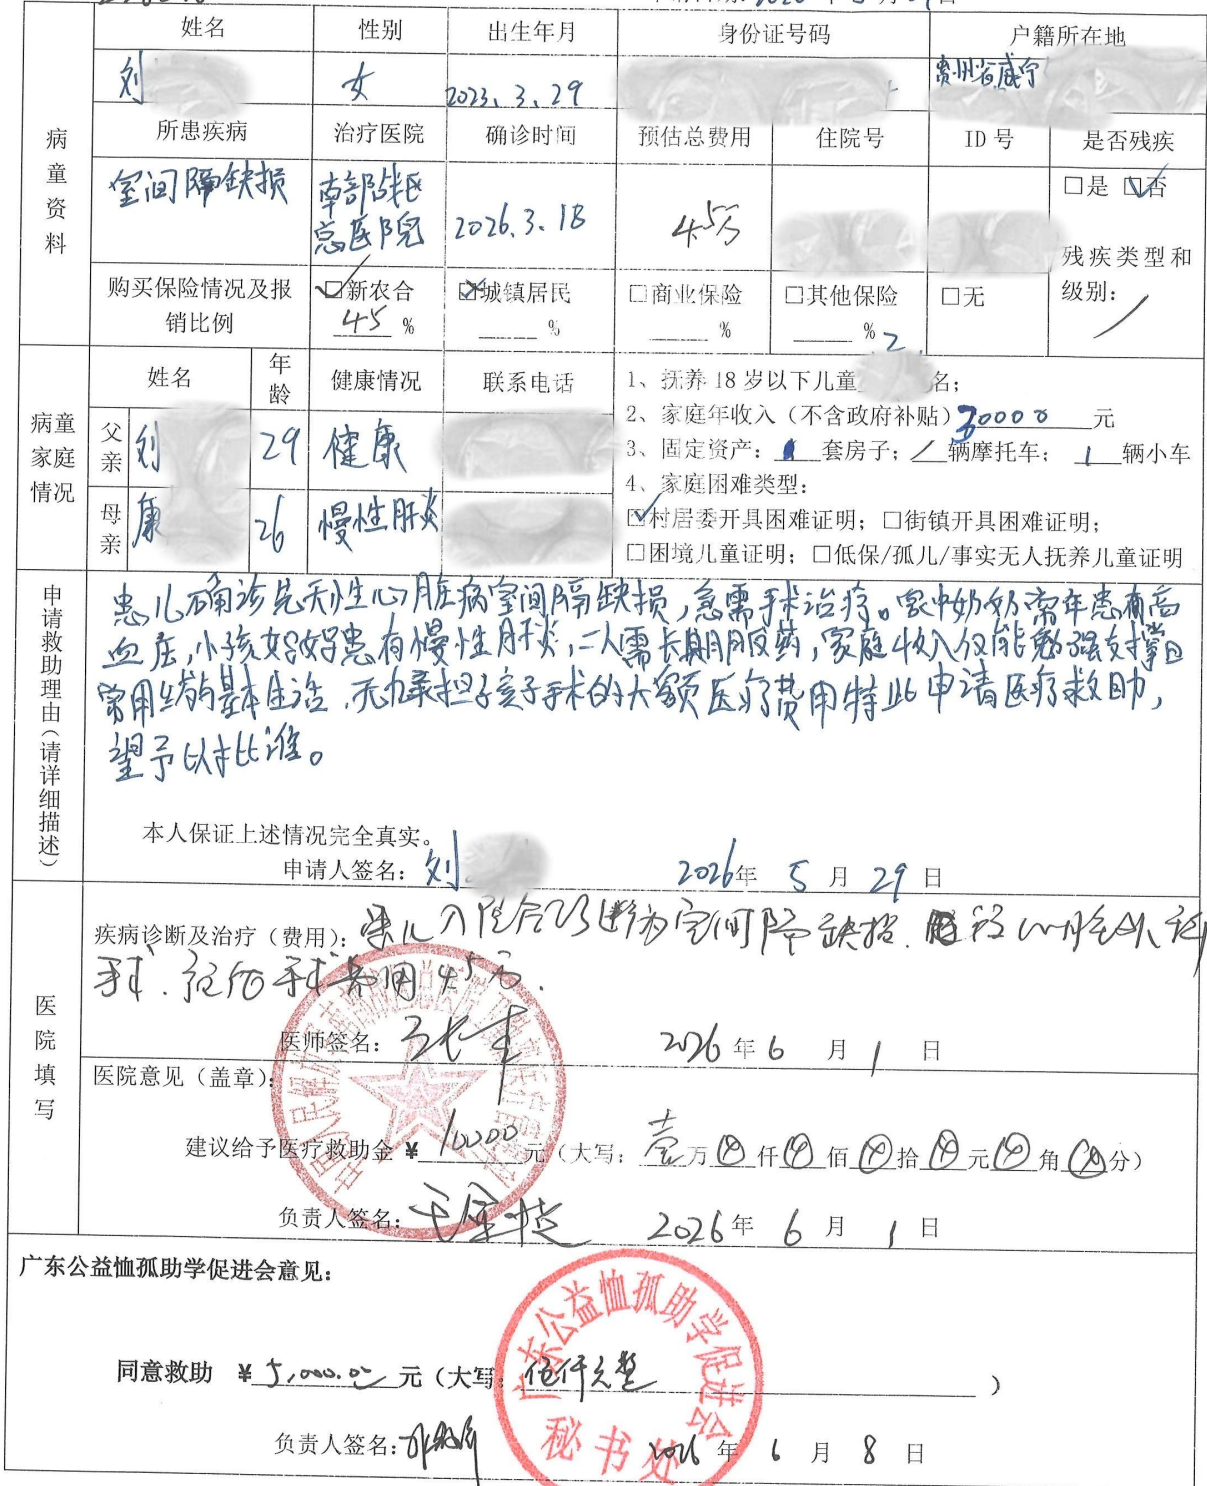 姓名 性别 出生年月 身份证号码 户籍所在地
刘 女 2023.3.29 贵州省威宁
病童资料
所患疾病 治疗医院 确诊时间 预估总费用 住院号 ID号 是否残疾
室间隔缺损 南部战区总医院 2026.3.18 4.5万 □是 ☑否
残疾类型和级别: /
购买保险情况及报销比例 ☑新农合 45 % □城镇居民 % □商业保险 % □其他保险 % □无
病童家庭情况
姓名 年龄 健康情况 联系电话
父亲 刘 29 健康
母亲 康 26 慢性肝炎
1、抚养18岁以下儿童 2 名;
2、家庭年收入(不含政府补贴) 30000 元
3、固定资产: 套房子; / 辆摩托车; 1 辆小车
4、家庭困难类型:
☑村居委开具困难证明; □街镇开具困难证明;
□困境儿童证明; □低保/孤儿/事实无人抚养儿童证明
申请救助理由(请详细描述)
患儿确诊先天性心脏病室间隔缺损,急需手术治疗。家中奶奶常年患有高
血压,小孩妈妈患有慢性肝炎,二人需长期服药,家庭收入仅能勉强支撑日
常用 的基本生活,无力承担孩子手术的大额医疗费用特此申请医疗救助,
望予以批准。
本人保证上述情况完全真实。
申请人签名: 刘 2026年 5 月 29 日
医院填写
疾病诊断及治疗(费用): 患儿入院 诊断为室间隔缺损.
手术. 预估手术费用4.5万.
医师签名: 2026年 6 月 1 日
医院意见(盖章):
建议给予医疗救助金 ¥ 10000 元(大写: 壹 万 仟 佰 拾 元 角 分)
负责人签名: 2026年 6 月 1 日
广东公益恤孤助学促进会意见:
同意救助 ¥ 5,000.00 元(大写: 伍仟元整 )
广东公益恤孤助学促进会
秘书处
负责人签名: 2026年 6 月 8 日